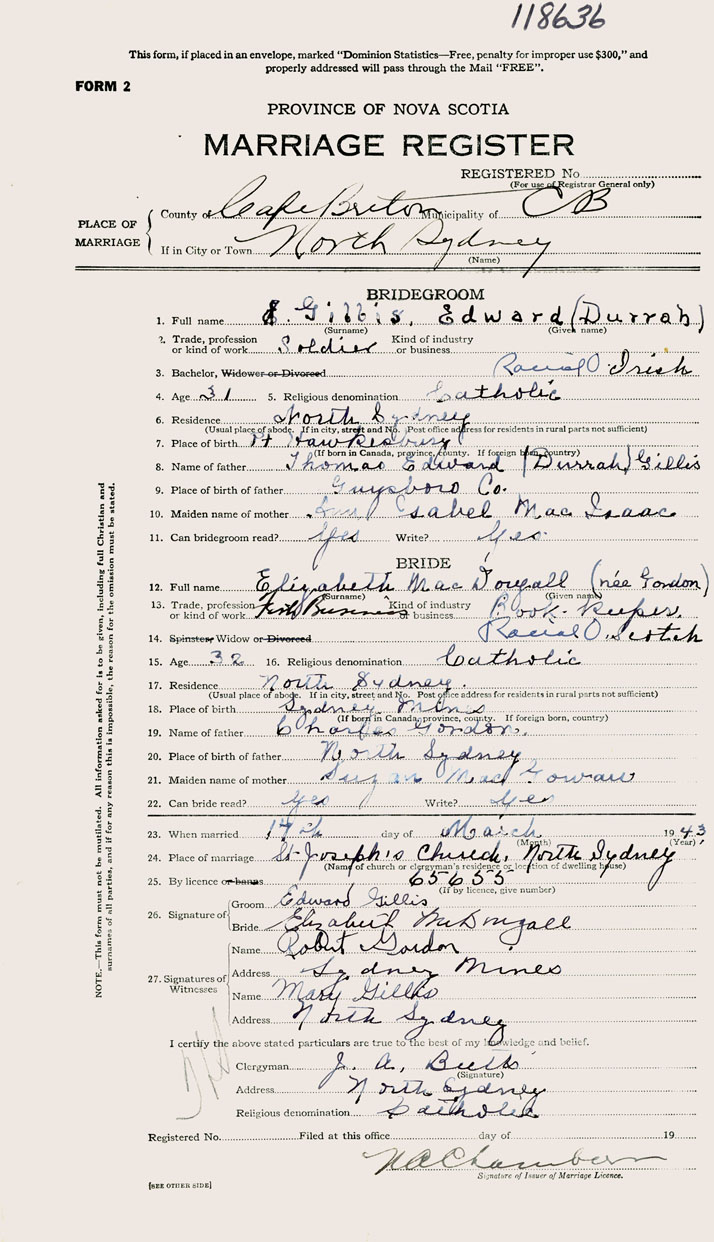 118636
This form, if placed in an envelope, marked "Dominion Statistics—Free, penalty for improper use $300," and
properly addressed will pass through the Mail "FREE".
FORM 2
PROVINCE OF NOVA SCOTIA
MARRIAGE REGISTER
REGISTERED No
(For use of Registrar General only)
PLACE OF MARRIAGE
County of Cape Breton Municipality of CB
If in City or Town North Sydney
(Name)
BRIDEGROOM
1. Full name Gillis, Edward (Durrah)
(Surname) (Given name)
2. Trade, profession or kind of work Soldier Kind of industry or business
3. Bachelor, Widower or Divorced Racial O. Irish
4. Age 31 5. Religious denomination Catholic
6. Residence North Sydney
(Usual place of abode. If in city, street and No. Post office address for residents in rural parts not sufficient)
7. Place of birth Pt Hawkesbury
(If born in Canada, province, county. If foreign born, country)
8. Name of father Thomas Edward (Durrah) Gillis
9. Place of birth of father Guysboro Co.
10. Maiden name of mother Isabel Mac Isaac
11. Can bridegroom read? Yes Write? Yes.
BRIDE
12. Full name Elizabeth Mac Dougall (née Gordon)
(Surname) (Given name)
13. Trade, profession or kind of work Fish Business Kind of industry or business Book-Keeper.
14. Spinster, Widow or Divorced Racial O. Scotch
15. Age 32 16. Religious denomination Catholic
17. Residence North Sydney.
(Usual place of abode. If in city, street and No. Post office address for residents in rural parts not sufficient)
18. Place of birth Sydney Mines
(If born in Canada, province, county. If foreign born, country)
19. Name of father Charles Gordon.
20. Place of birth of father North Sydney
21. Maiden name of mother Susan Mac Gowan
22. Can bride read? Yes Write? Yes
23. When married 17th day of March 1943,
(Month) (Year)
24. Place of marriage St. Joseph's Church, North Sydney
(Name of church or clergyman's residence or location of dwelling house)
25. By licence or banns 65655
(If by licence, give number)
26. Signature of
Groom Edward Gillis
Bride Elizabeth McDougall
27. Signatures of Witnesses
Name Robert Gordon
Address Sydney Mines
Name Mary Gillis
Address North Sydney
I certify the above stated particulars are true to the best of my knowledge and belief.
Clergyman J. A. Butts
(Signature)
Address North Sydney
Religious denomination Catholic
Registered No. Filed at this office day of 19
Signature of Issuer of Marriage Licence.
[SEE OTHER SIDE]
NOTE.—This form must not be mutilated. All information asked for is to be given, including full Christian and
surnames of all parties, and if for any reason this is impossible, the reason for the omission must be stated.